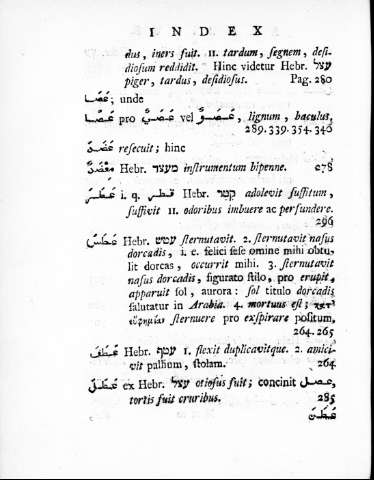 INDEX
dus, iners fuit. II. tardum, segnem, desi-
diosum reddidit. Hinc videtur Hebr. עצל
piger, tardus, desidiosus. Pag. 280
عَصَا; unde
عَصًا pro عَصَوٌ vel عَصَىٌ, lignum, baculus,
289.339.354.346
عَضَدَ resecuit; hinc
مِعْضَدٌ Hebr. מעצד instrumentum bipenne. 278
عَطَرَ i. q. قطر Hebr. קטר adolevit suffitum,
suffivit II. odoribus imbuere ac perfundere.
296
عَطَسَ Hebr. עטש sternutavit. 2. sternutavit nasus
dorcadis, i. e. felici sese omine mihi obtu-
lit dorcas, occurrit mihi. 3. sternutavit
nasus dorcadis, figurato stilo, pro erupit,
apparuit sol, aurora: sol titulo dorcadis
salutatur in Arabia. 4. mortuus est;
sternuere pro exspirare positum,
264.265
عَطَفَ Hebr. עטף 1. flexit duplicavitque. 2. amici-
vit pallium, stolam. 264
عَطَلَ ex Hebr. עצל otiosus fuit; concinit عصل,
tortis fuit cruribus. 285
عَطَنَ